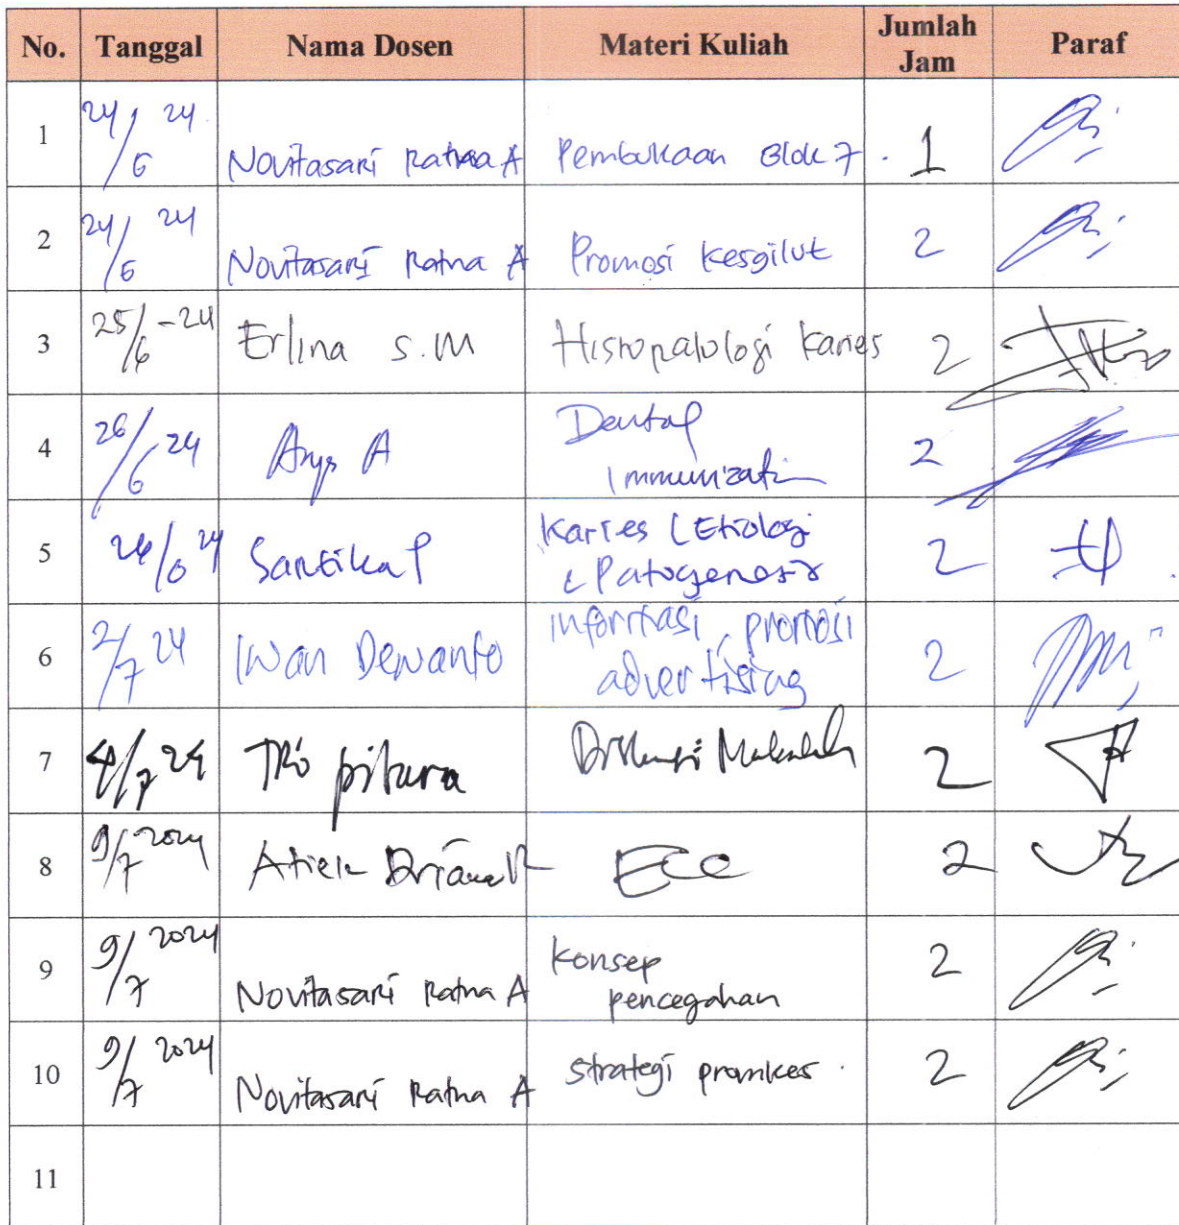 No. Tanggal Nama Dosen Materi Kuliah Jumlah Jam Paraf
1 24/6 24 Novitasari Ratna A Pembukaan Blok 7. 1
2 24/6 24 Novitasari Ratna A Promosi Kesgilut 2
3 25/6-24 Erlina S.M Histopatologi Karies 2
4 26/6 24 A Dental Immunizati 2
5 26/6 24 Santika P Karies (Etiologi & Patogenesis 2
6 2/7 24 Iwan Dewanto informasi, promosi advertising 2
7 4/7 24 Diskusi Makalah 2
8 9/7 2024 Atiek Driana R ECC 2
9 9/7 2024 Novitasari Ratna A Konsep pencegahan 2
10 9/7 2024 Novitasari Ratna A Strategi promkes. 2
11